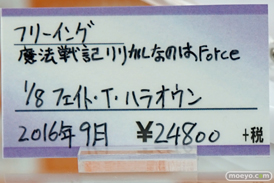 フリーイング
魔法戦記リリカルなのはForce
1/8 フェイト・T・ハラオウン
2016年9月 ¥24800 +税
moeyo.com